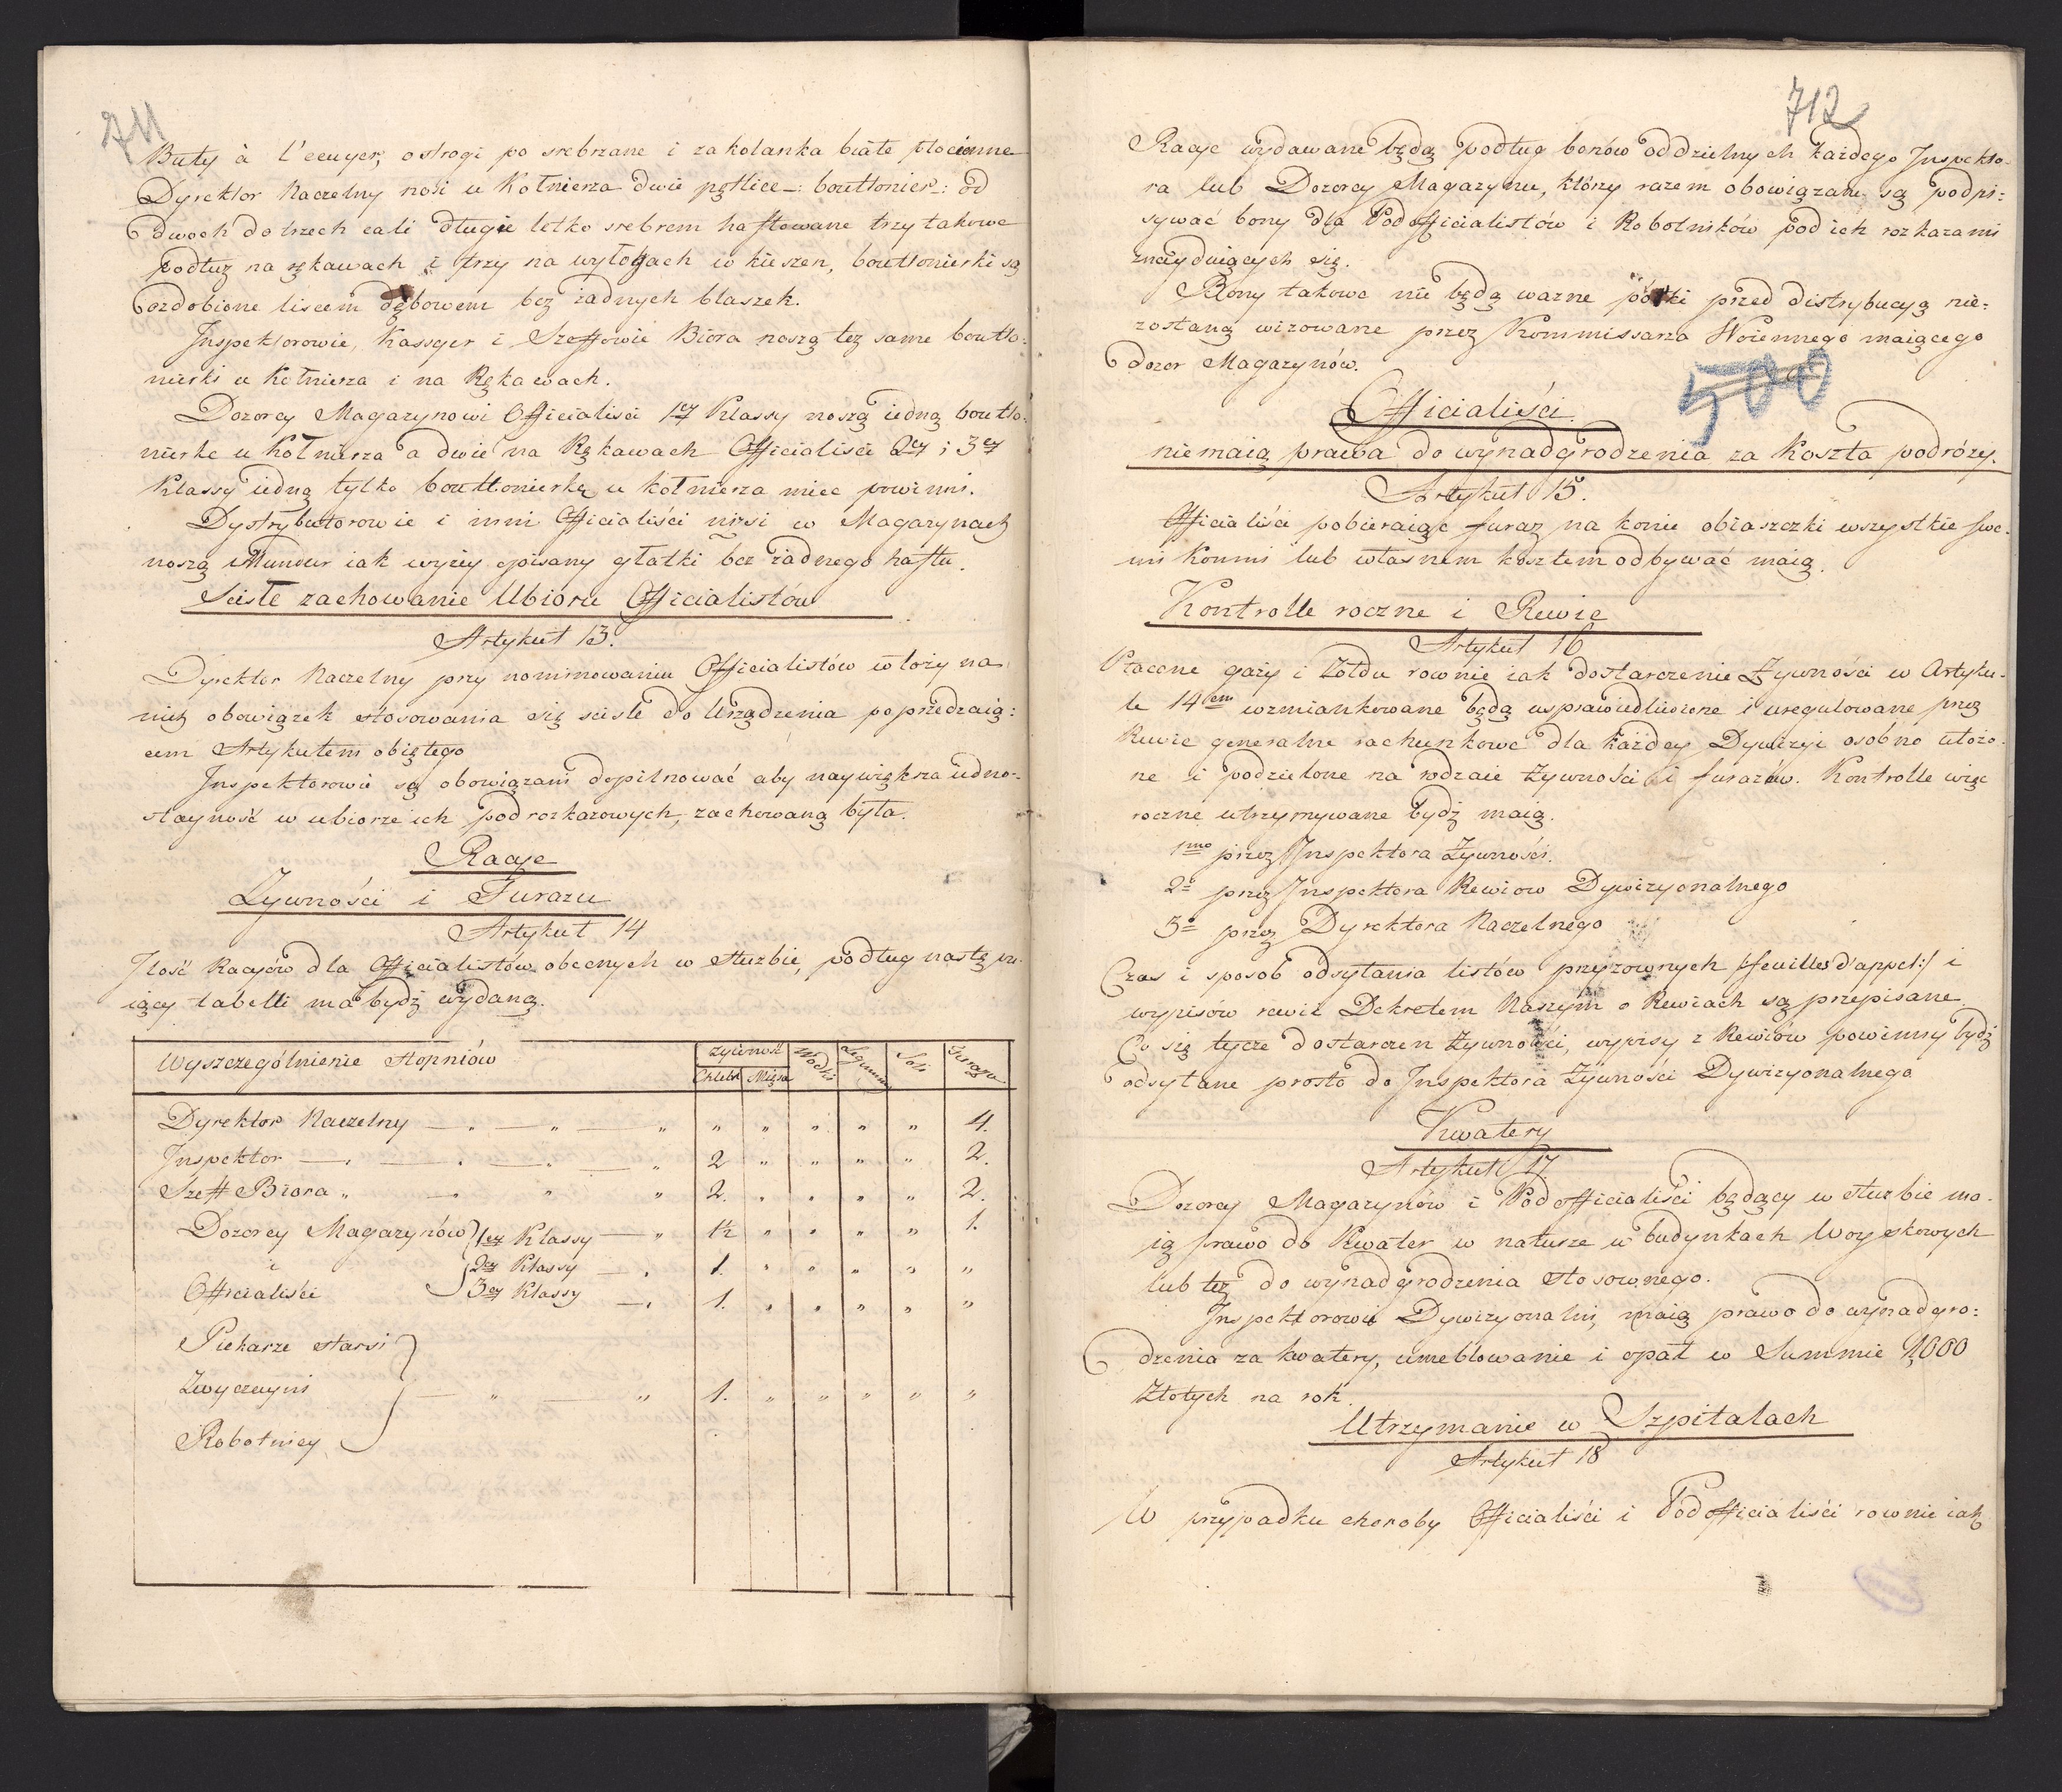 711
Buty à l'ecuyer, ostrogi po srebrzane i zakolanka białe płocienne
Dyrektor Naczelny nosi u Kołnierza dwie pętlice -: boutonier: od
dwoch do trzech cali długie letko srebrem haftowane trzy takowe
podłuż na rękawach i trzy na wyłogach w kieszen, boutonierki są
ozdobione lisciem dębowem bez żadnych blaszek.
Jnspektorowie, Kassyer i Szeffowie Biora noszą też same boutto-
nierki u Kołnierza i na Rękawach.
Dozorcy Magazynowi Officialisci 1ey Klassy noszą iedną boutto-
nierke u Kołnierza a dwie na Rękawach Officialisci 2ey i 3ey
Klassy iedną tylko bouttonierkę u kołnierza miec powinni.
Dystrybutorowie i inni Officialiści niżsi w Magazynach
noszą Mundur iak wyżey opisany gładki bez żadnego haftu.
Scisłe zachowanie Ubioru Officialistów
Artykuł 13.
Dyrektor Naczelny przy nominowaniu Officialistów włoży na
nich obowiązek stosowania się sciśle do Urządzenia poprzedzaią:
cem Artykułem obiętego
Jnspektorowie są obowiązani dopilnować aby naywiększa iedno-
stayność w ubiorze ich podrozkazowych, zachowaną była.
Racye
Żywności i Furażu
Artykuł 14
Jlość Racyów dla Officialistów obecnych w służbie, podług nastęρu-
iącey tabelli ma bydź wydaną.
Wyszczególnienie stopniów żywność Wodki Legumin Soli Furażu
Chleba Mięsa
Dyrektor Naczelny — " — " — " " " " " " 4.
Jnspektor — . — . — " — " 2 " " " " 2.
Szeff Biora " — " " " 2. " " " " 2.
Dozorcy Magazynów 1ey Klassy — " 1½ " " " " 1.
i 2ey Klassy — . 1. " " " " "
Officialiści 3ey Klassy — . 1. " " " " "
Piekarze starsi
Zwyczayni — " — " 1. " " " " "
Robotnicy
712
Racye wydawane będą podług bonów oddzielnych każdego Jnspekto-
ra lub Dozorcy Magazynu, którzy razem obowiązani są podpi:
sywać bony dla Podofficialistów i Robotników pod ich rozkazami
znayduiących się.
Bony takowe nie będą ważne póki przed distrybucyą nie:
zostaną wizowane przez Kommissarza Woiennego maiącego
dozor Magazynów.
500
Officialiści
nie maią prawa do wynadgrodzenia za Koszta podróży.
Artykuł 15.
Officialiści pobieraiąc furaż na konie obiaszczki wszystkie swe-
mi konmi lub własnem kosztem odbywać maią.
Kontrolle roczne i Rewie
Artykuł 16
Płacone gaży i Żołdu rownie iak dostarczenie Żywności w Artyku-
le 14em wzmiankowane będą usprawiedliwione i uregulowane przez
Rewie generalne rachunkowe dla każdey Dywizyi osobno ułożo-
ne i podzielone na rodzaie żywności i furażów. Kontrolle więc
roczne utrzymywane bydź maią.
1mo przez Jnspektora Żywności.
2o przez Jnspektora Rewiow Dywizyonalnego
3o przez Dyrektora Naczelnego
Czas i sposob odsyłania listów przyzownych /:feuilles d'appel:/ i
wypisów rewii Dekretem Naszym o Rewiach są przepisane.
Co się tycze dostarczen Żywności, wypisy z Rewiów powinny bydź
odsyłane prosto do Jnspektora Żywności Dywizyonalnego
Kwatery
Artykuł 17
Dozorcy Magazynów i Podofficialiści będący w służbie ma-
ią prawo do Kwater w naturze w budynkach Woyskowych
lub też do wynadgrodzenia stosownego.
Jnspektorowie Dywizyonalni, maią prawo do wynadgro:
dzenia za kwatery, umeblowanie i opał w Summie 1,000
Złotych na rok.
Utrzymanie w Szpitalach
Artykuł 18
W przypadku choroby Officialiści i Podofficialiści rownie iak